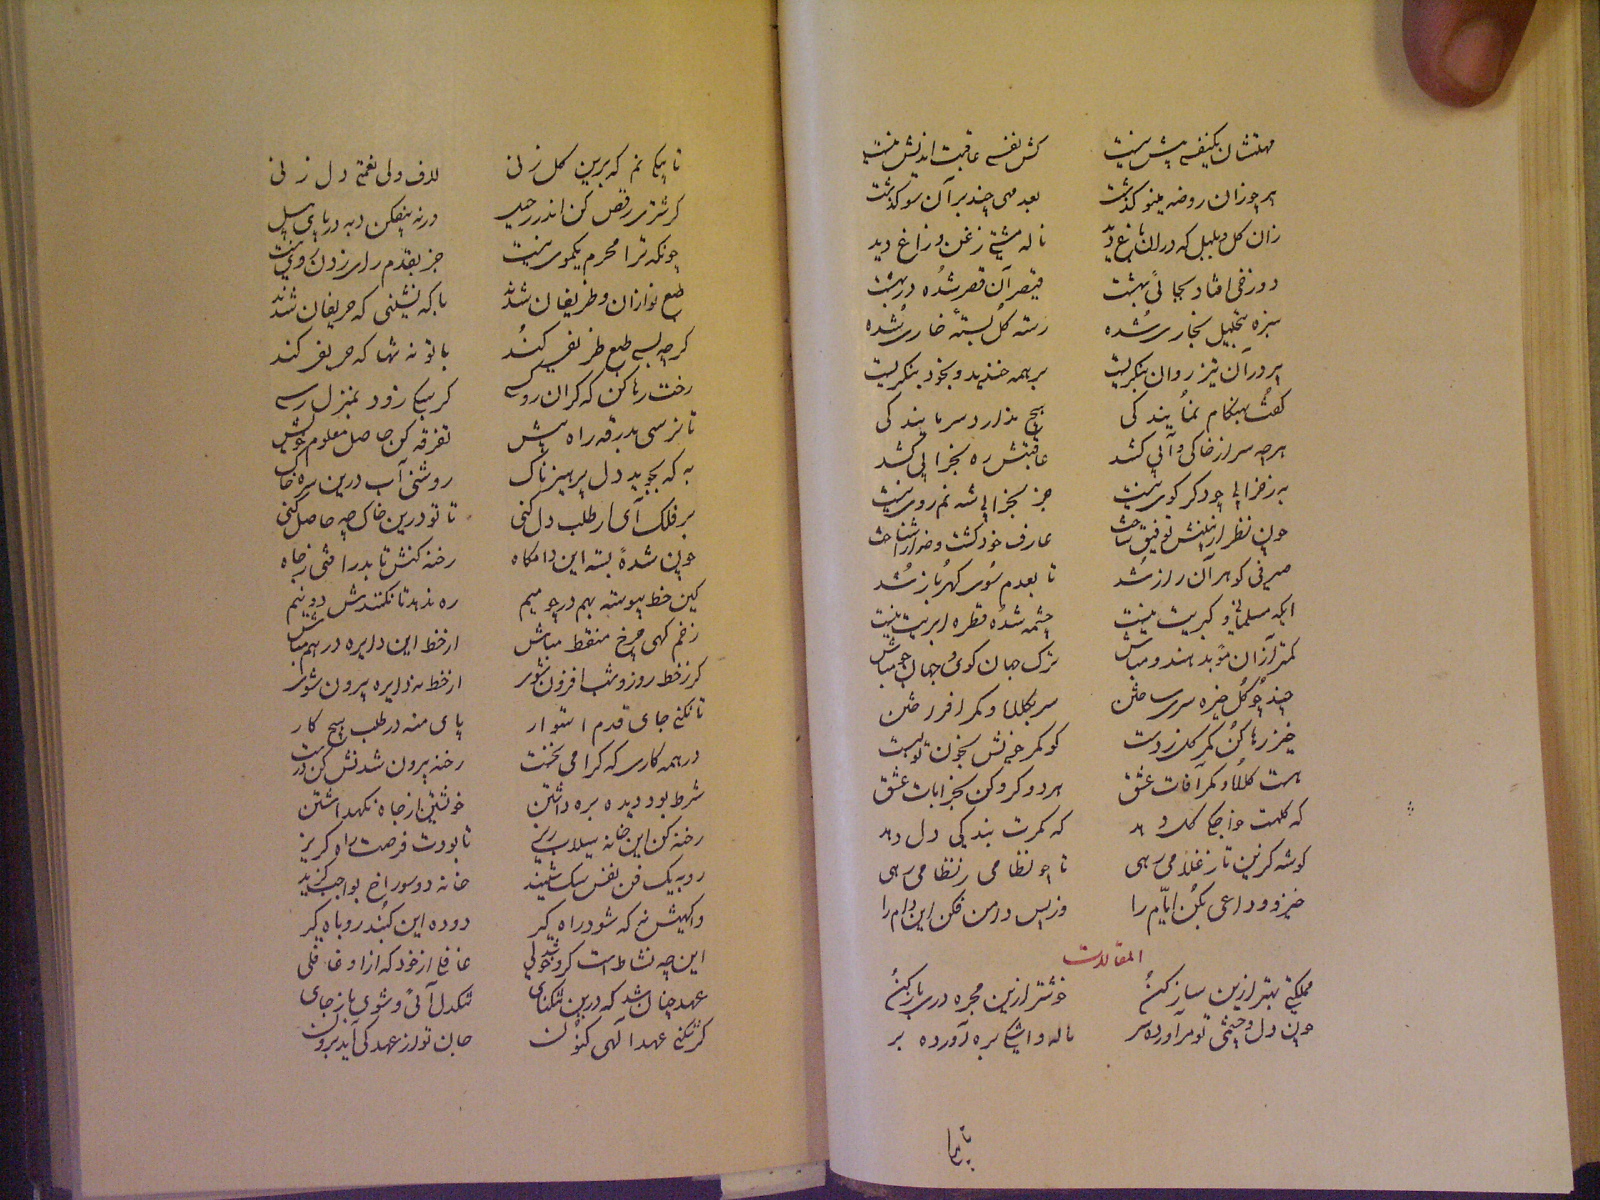 مهلتشان یکنفسی بیش نیست کش نفسی عاقبت اندیش نیست
پیر چو زان روضه مینو گذشت بعد مهی چند بر آن سو گذشت
زان گل و بلبل که در آن باغ دید ناله مشتی زغن و زاغ دید
دوزخی افتاد بجائی بهشت قیصر آن قصر شده در بهشت
سبزه بتحلیل بخاری شده دسته گل پسته خاری شده
پیر در آن تیز روان بنگریست بر همه خندید و بخود بنگریست
گفت بهنگام نمایندگی هیچ ندارد سر پایندگی
هرچه سر از خاکی و آبی کشد عاقبتش ره بخرابی کشد
به ز خرابی چو دگر کوی نیست جز بخرابی شدنم روی نیست
چون نظر از بینش توفیق ساخت عارف خود گشت و خدا را شناخت
صیرفی گوهر آن راز شد تا بعدم سوی گهر باز شد
ایکه مسلمانی و گبریت نیست چشمه شده قطره ابریت نیست
کمتر از آن موبد هندو مباش ترک جهان گوی و جهان جو مباش
چند چو گل خیره سری ساختن سر بکلاه و کمر افراختن
خیز رها کن کمر گل ز دست کو کمر خویش بخون تو بست
هست کلاه و کمر آفات عشق هر دو گرو کن بخرابات عشق
که کلهت خواجگی گل دهد که کمرت بندگی دل دهد
گوشه گزین تا ز غلامی رهی تا چو نظامی ز نظامی رهی
خیز و وداعی بکن ایام را وز پس دامن فکن این دام را
المقالات
مملکتی بهتر ازین ساز کن خوشتر ازین حجره دری باز کن
چون دل و چشمی تو بر آورده سر ناله و اشکی بره آورده بر
تا بیکی نم که برین گل زنی لاف ولی نعمتی دل زنی
گر شتری رقص کن اندر رحیل ورنه بیفکن دبه در پای پیل
چونکه ترا محرم یکموی نیست جز بقدم رای زدن روی نیست
طبع نوازان و ظریفان شدند با که نشینی که حریفان شدند
گرچه بسی طبع ظریفی کند با تو نه تنها که حریفی کند
رخت رها کن که گران رو کسی کز سبکی زود بمنزل رسی
تا نرسی بدرقه راه پیش تفرقه کن حاصل معلوم خویش
به که بجوید دل پرهیزناک روشنی آب درین تیره خاک
بر فلک آی ار طلب دل کنی تا تو درین خاک چه حاصل کنی
چون شده بسته این دامگاه رخنه کنش تا بدر افتی ز چاه
کین خط پیوسته بهم در چو میم ره ندهد تا نکنندش دو نیم
زخم گهی چرخ منقط مباش از خط این دایره در هم مباش
گر ز خط روز و شب افزون شوی از خط نه دایره بیرون شوی
تا نکنی جای قدم استوار پای منه در طلب هیچ کار
در همه کاری که گرامی نخست رخنه بیرون شدنش کن درست
شرط بود دیده بره داشتن خویشتن از چاه نگهداشتن
رخنه کن این خانه سیلاب ریز تا بودت فرصت راه گریز
روبه یک فن نفس سگ شنید خانه دو سوراخ بواجب گزید
واگهیش نه که شود راه گیر دوده این گنبد روباه گیر
این چه نشاط است کزو خوشدلی غافلی از خود که ازو غافلی
عهد چنان شد که درین تنگنای تنگدل آئی و شوی باز جای
گر شکنی عهد الهی کنون جان تو از عهد کی آید برون